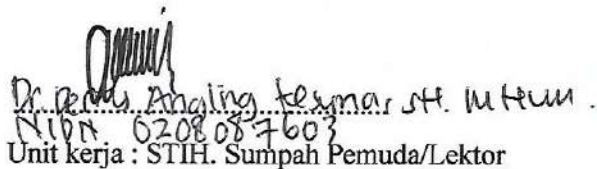 Dr. Derry Angling Kesuma, SH. M.Hum.
NIDN 0208087603
Unit kerja : STIH. Sumpah Pemuda/Lektor